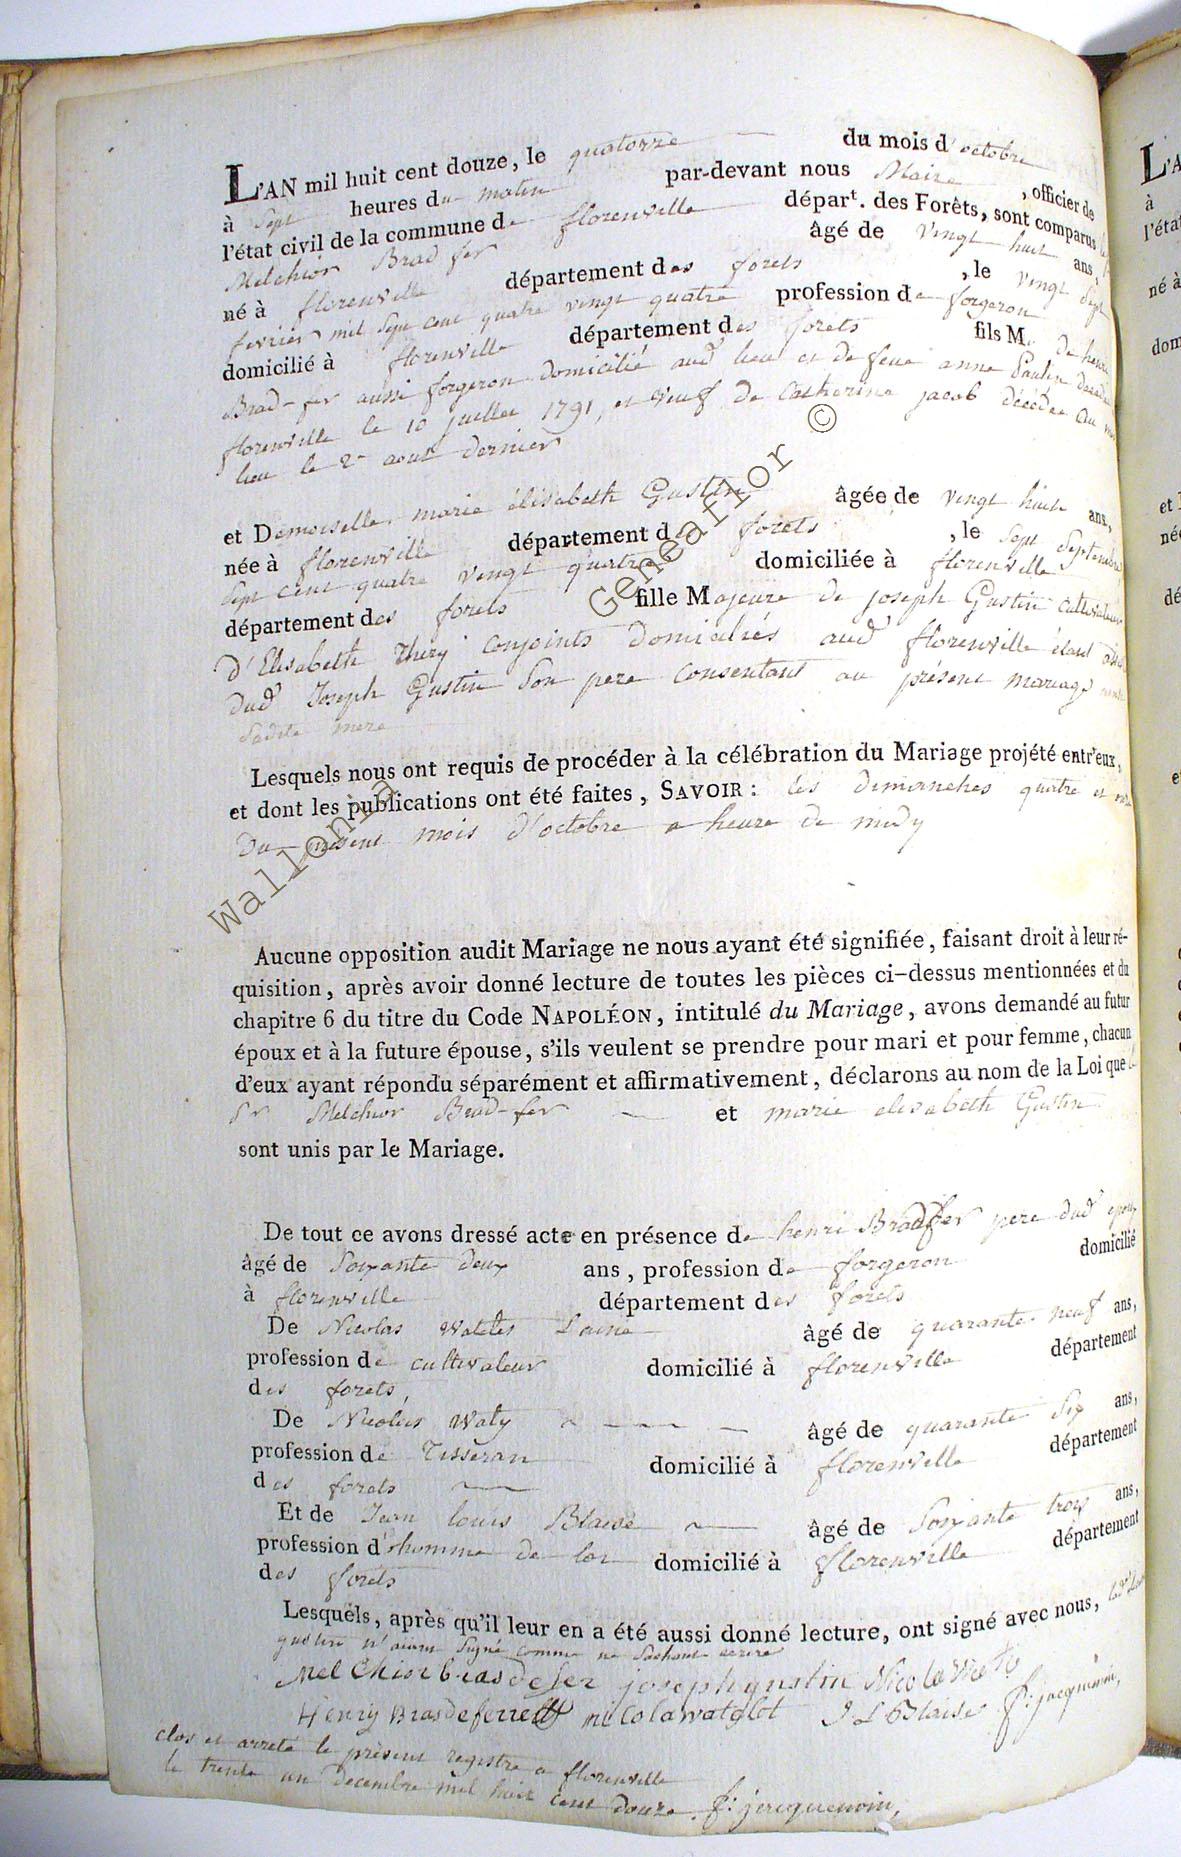 L'AN mil huit cent douze, le quatorze du mois d'octobre
à sept heures du matin par-devant nous Maire, officier de
l'état civil de la commune de florenville départ. des Forêts, sont comparus
Melchior Brad fer âgé de vingt huit ans,
né à florenville département des forets, le vingt sept
fevrier mil sept cent quatre vingt quatre profession de forgeron
domicilié à florenville département des forets fils M. de henri
Brad-fer aussi forgeron domicilié aud lieu et de feue anne Paulin
florenville le 10 juillet 1791, et veuf de Catherine jacob décédée au
lieu le 2 aout dernier
et Demoiselle marie élisabeth Gustin âgée de vingt huit ans,
née à florenville département des forets, le sept septembre
sept cent quatre vingt quatre domiciliée à florenville
département des forets fille Majeure de joseph Gustin cultivateur
d'Elisabeth Thery conjoints domiciliés aud florenville étant
dud Joseph Gustin son pere consentant au présent mariage
sadite mere
Lesquels nous ont requis de procéder à la célébration du Mariage projété entr'eux,
et dont les publications ont été faites, SAVOIR : les dimanches quatre et onze
du présent mois d'octobre a heure de midy
Aucune opposition audit Mariage ne nous ayant été signifiée, faisant droit à leur ré-
quisition, après avoir donné lecture de toutes les pièces ci-dessus mentionnées et du
chapitre 6 du titre du Code NAPOLÉON, intitulé du Mariage, avons demandé au futur
époux et à la future épouse, s'ils veulent se prendre pour mari et pour femme, chacun
d'eux ayant répondu séparément et affirmativement, déclarons au nom de la Loi que le
Sr Melchior Brad-fer et marie elisabeth Gustin
sont unis par le Mariage.
De tout ce avons dressé acte en présence de henri Bradffer pere dud epoux
âgé de soixante deux ans, profession de forgeron domicilié
à florenville département des forets
De Nicolas Watelet Lainé âgé de quarante neuf ans,
profession de cultivateur domicilié à florenville département
des forets,
De Nicolas Waty âgé de quarante six ans,
profession de Tisseran domicilié à florenville département
des forets
Et de Jean louis Blaise âgé de soixante trois ans,
profession d'homme de loi domicilié à florenville département
des forets
Lesquels, après qu'il leur en a été aussi donné lecture, ont signé avec nous,
gustin n'aiant signé comme ne sachant ecrire
Mel Chior bras de fer joseph gustin Nicola Waty
Henry Brasdeferre nicola watelot J L Blaise f: jacquemin,
clos et arreté le présent registre a florenville
le trente un decembre mil huit cent douze. f: jacquemin,
Wallonia Geneaflor ©
L'A
à
l'éta
né à
dom
et
née
dé